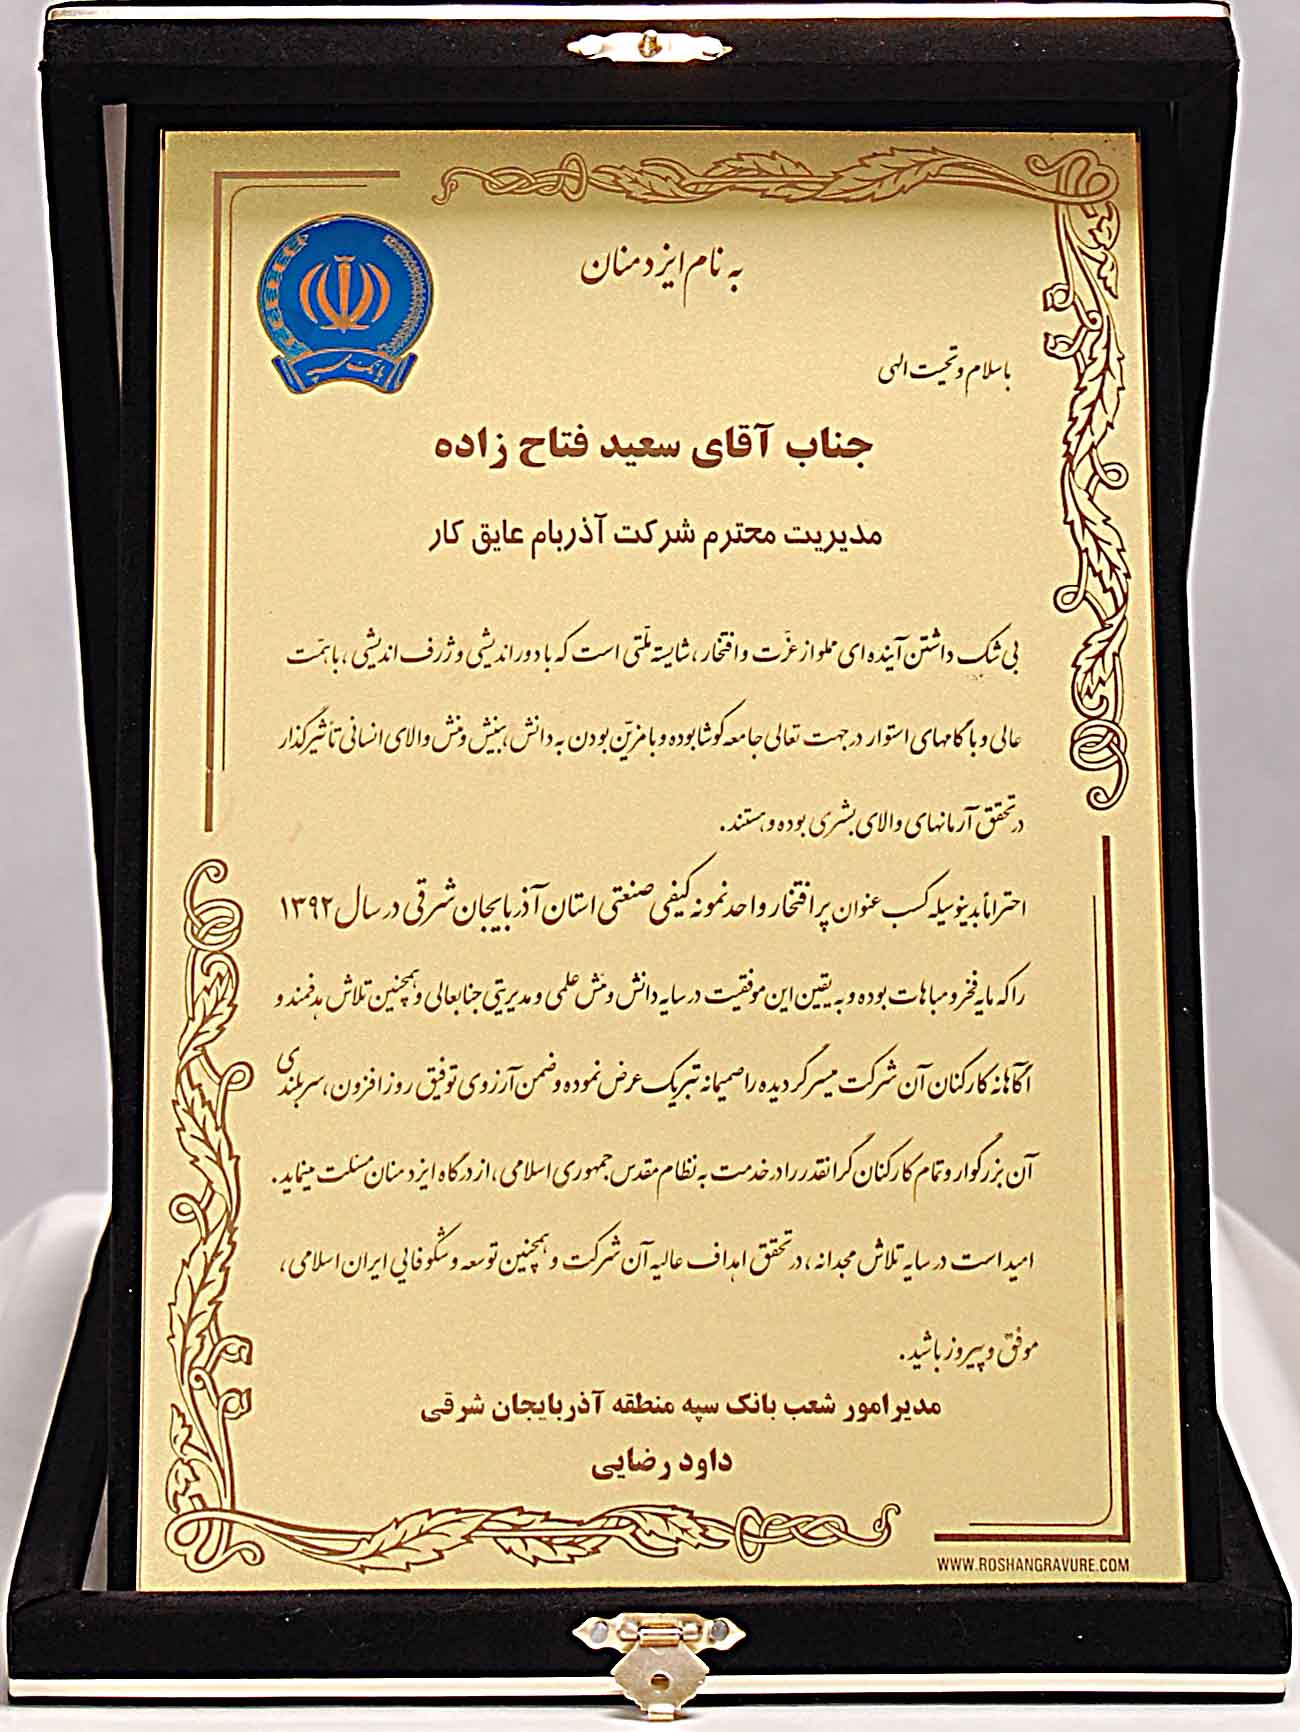 به نام ایزد منان
بانک سپه
با سلام و تحیت الهی
جناب آقای سعید فتاح زاده
مدیریت محترم شرکت آذربام عایق کار
بی شک داشتن آینده ای مملو از عزّت و افتخار ، شایسته ملّتی است که با دوراندیشی و ژرف اندیشی ، با همّت
عالی و با گامهای استوار در جهت تعالی جامعه کوشا بوده و با مزیّن بودن به دانش ، بینش و منش والای انسانی تأثیرگذار
در تحقق آرمانهای والای بشری بوده و هستند .
احتراماً بدینوسیله کسب عنوان پر افتخار واحد نمونه کیفی صنعتی استان آذربایجان شرقی در سال ۱۳۹۲
را که مایه فخر و مباهات بوده و به یقین این موفقیت در سایه دانش و منش علمی و مدیریتی جنابعالی و همچنین تلاش هدفمند و
آگاهانه کارکنان آن شرکت میسر گردیده را صمیمانه تبریک عرض نموده و ضمن آرزوی توفیق روز افزون ، سربلندی
آن بزرگوار و تمام کارکنان گرانقدر را در خدمت به نظام مقدس جمهوری اسلامی ، از درگاه ایزد منان مسئلت مینماید .
امید است در سایه تلاش مجدانه ، در تحقق اهداف عالیه آن شرکت و همچنین توسعه و شکوفایی ایران اسلامی ،
موفق و پیروز باشید .
مدیر امور شعب بانک سپه منطقه آذربایجان شرقی
داود رضایی
WWW.ROSHANGRAVURE.COM